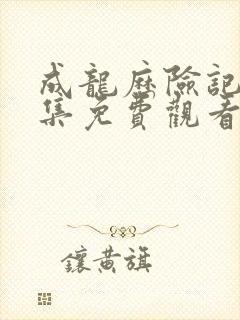 成龍歷險記
集免費觀看
鑲黃旗